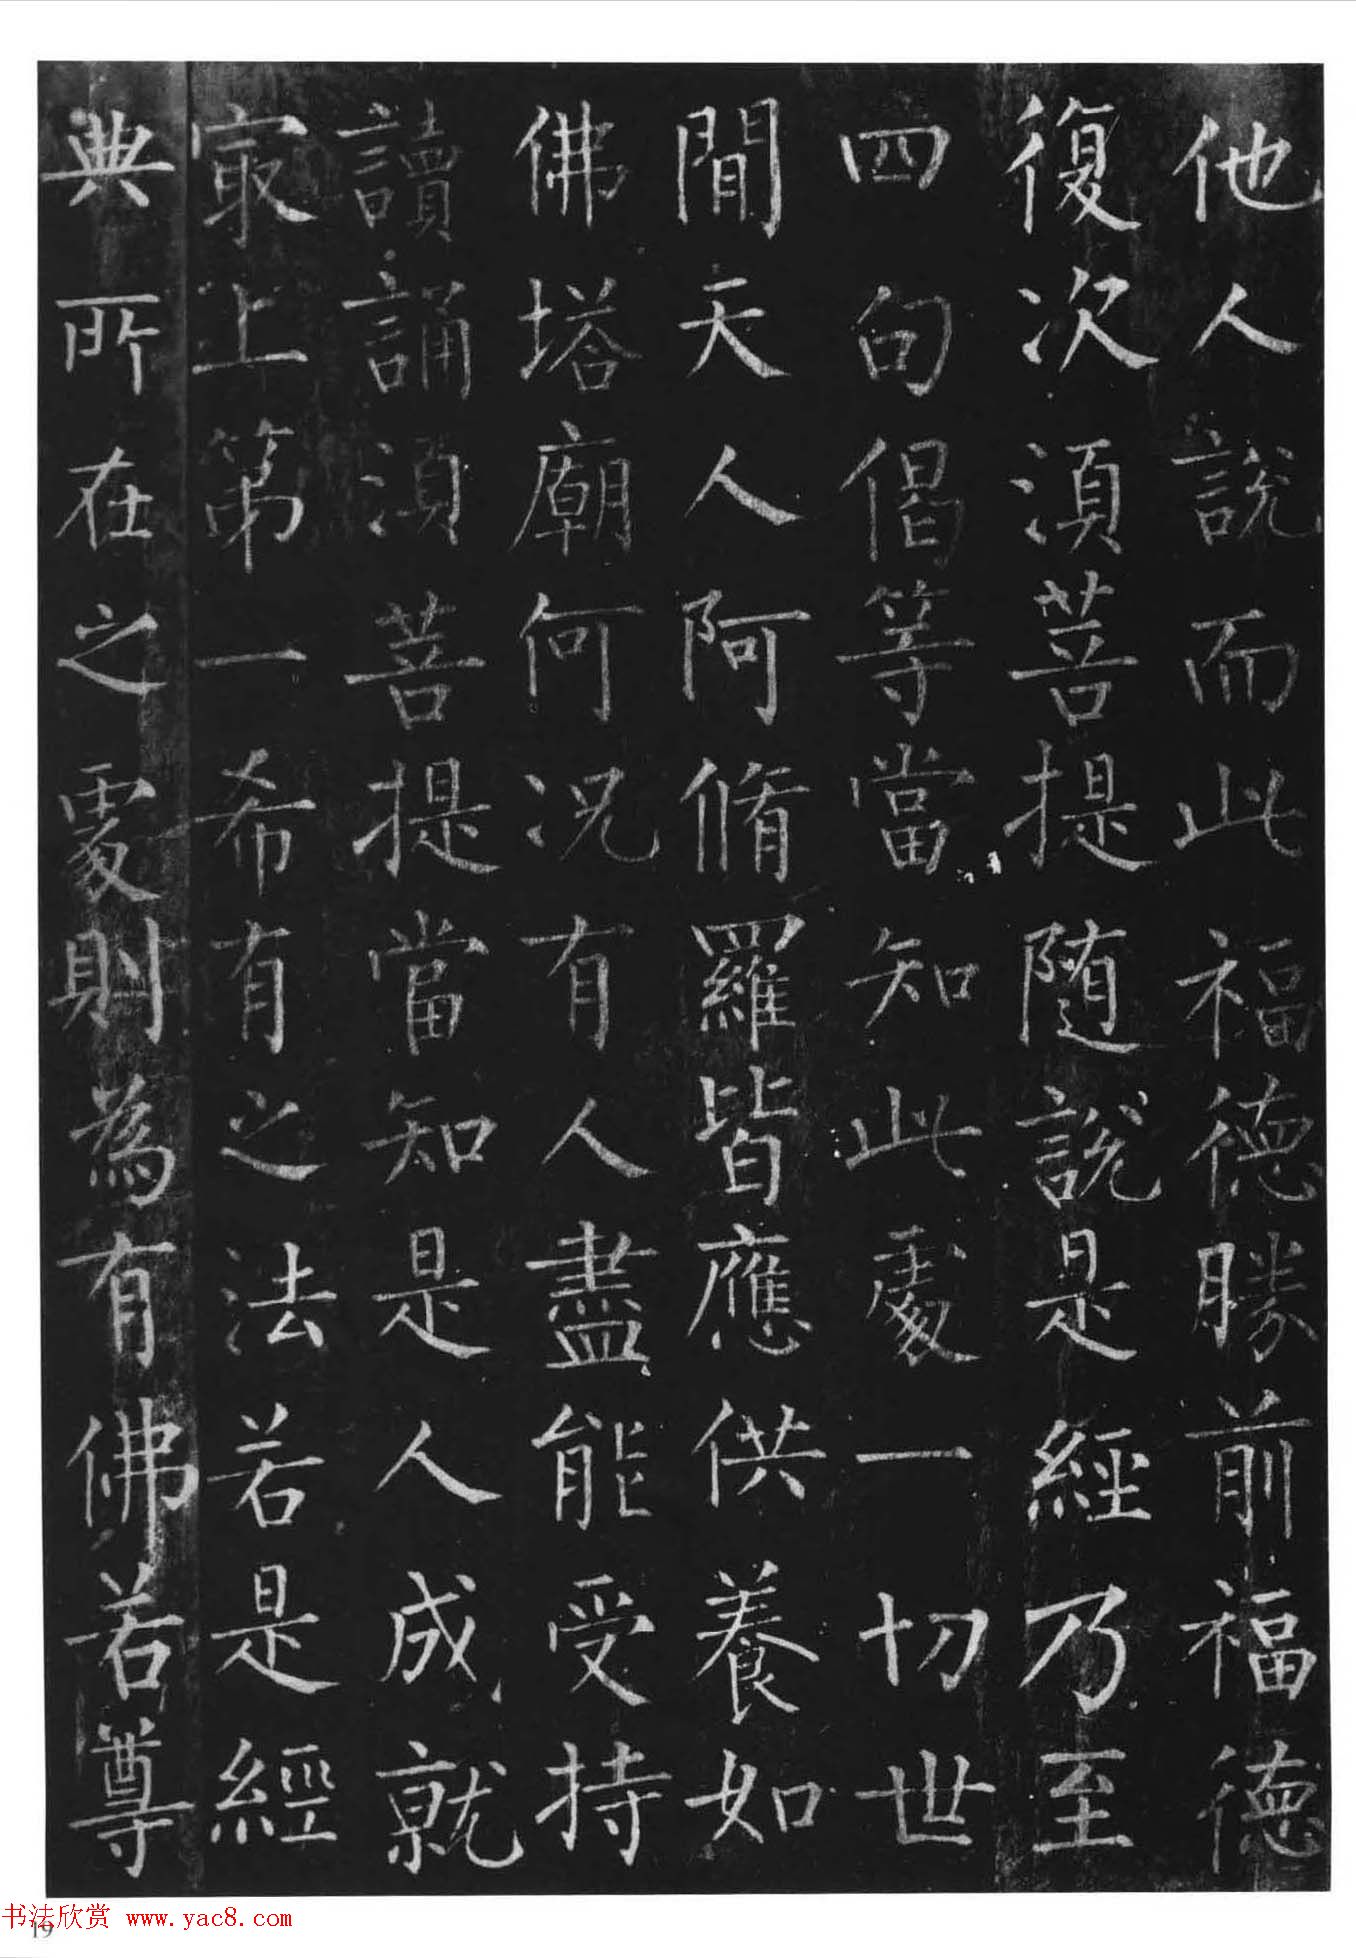 他人說而此福德勝前福德
復次須菩提随說是經乃至
四句偈等當知此處一切世
間天人阿脩羅皆應供養如
佛塔廟何况有人盡能受持
讀誦須菩提當知是人成就
冣上第一希有之法若是經
典所在之處則為有佛若尊
书法欣赏 www.yac8.com
19